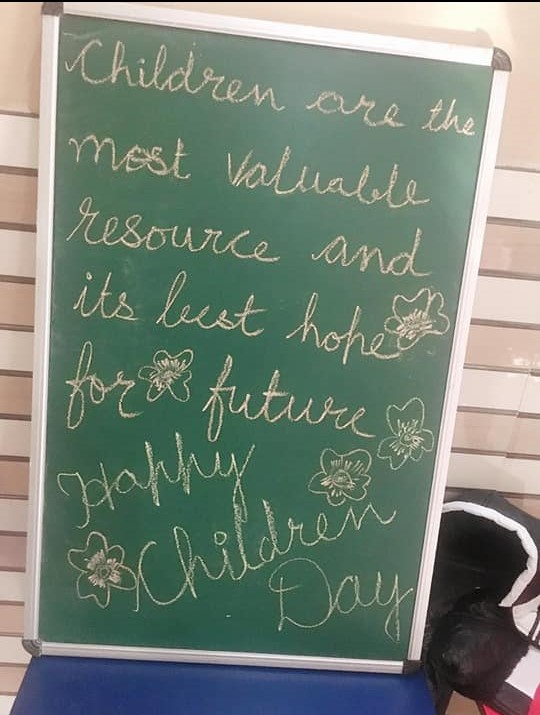 Children are the
most valuable
resource and
its best hope
for future
Happy
Children
Day